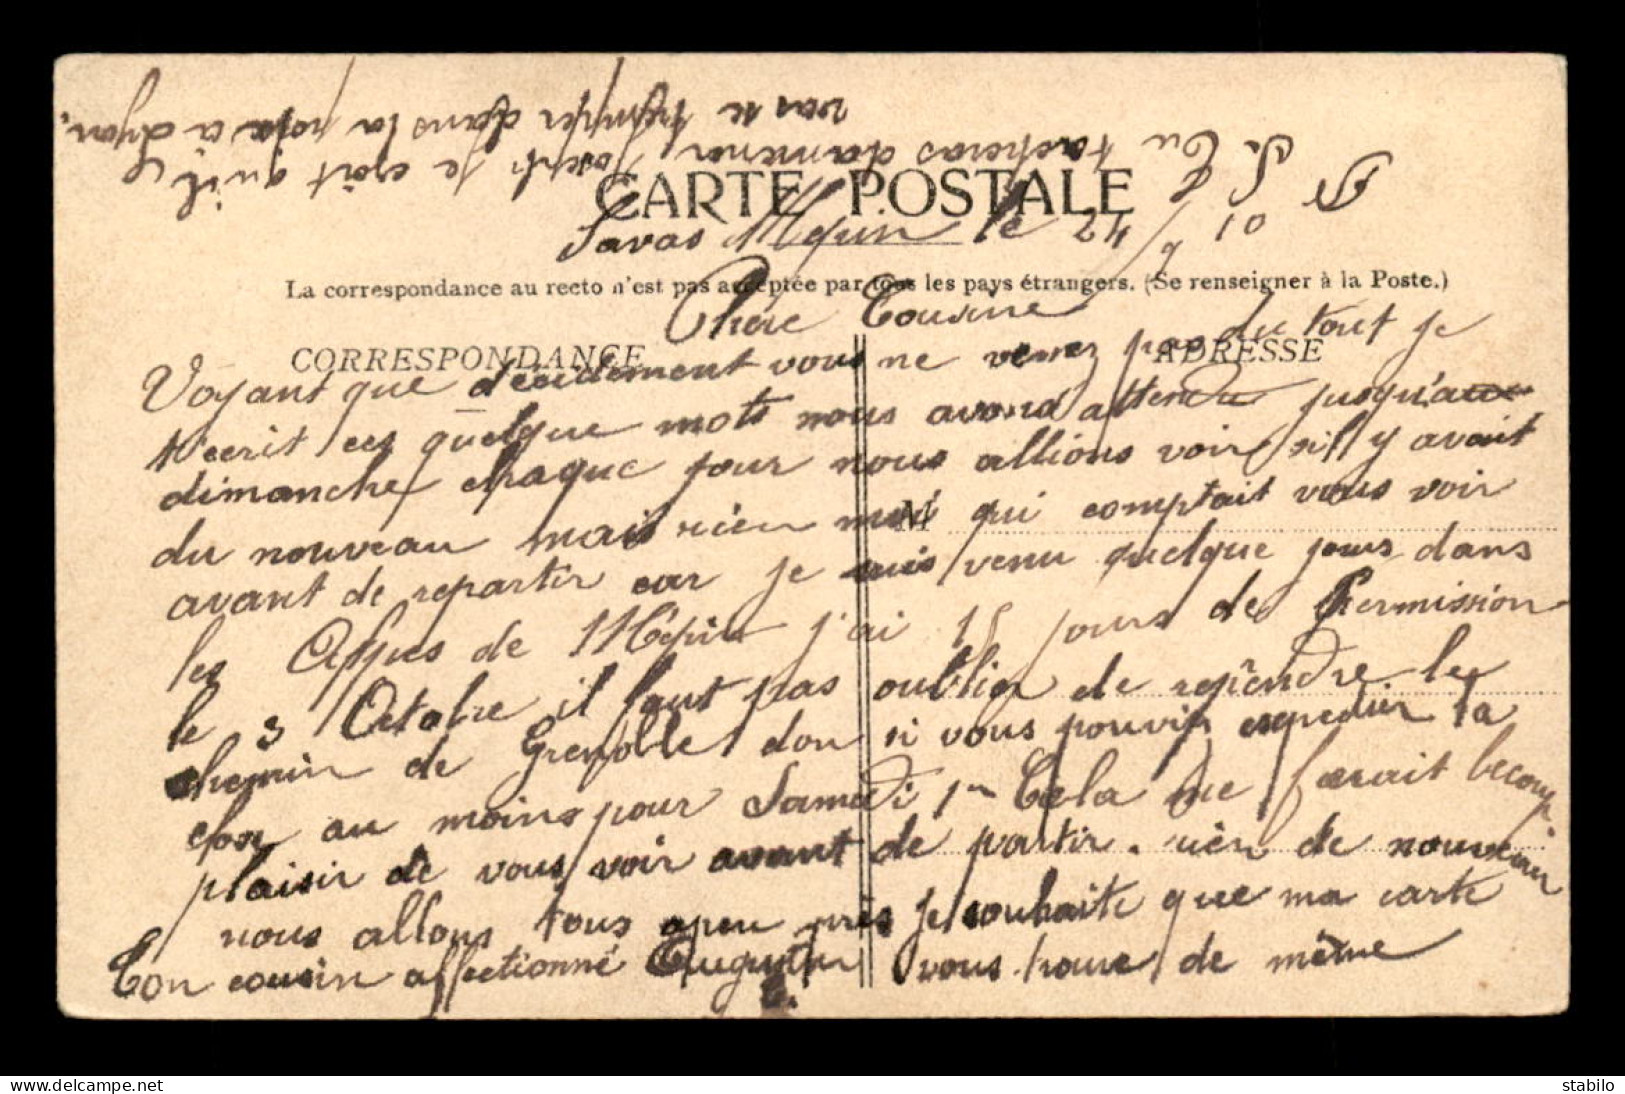 CARTE POSTALE
Savas Mépin le
La correspondance au recto n'est pas acceptée par tous les pays étrangers. (Se renseigner à la Poste.)
Chère Cousine
CORRESPONDANCE
ADRESSE
Voyant que décidement vous ne venez pas du tout je
t'ecrit ces quelque mots nous avons attendu jusqu'a
dimanche chaque jour nous allions voir sil y avait
du nouveau mais rien moi qui comptait vous voir
M
avant de repartir car je suis venu quelque jours dans
les Alpes de Mépin j'ai 15 jours de Permission
le 3 Octobre il faut pas oublier de rejîendre le
chemin de Grenoble don si vous pouvir expedier la
au moins pour Samedi 1er Cela me faerait becoup
plaisir de vous voir avant de partir. rien de nouveau
nous allons tous apeu près je souhaite que ma carte
vous trouve de même
Ton cousin affectionné Augustin
Si Tu tacheras damener Joseph je croit qu'il
vas se tremper dans la à Lyon.
stabilo